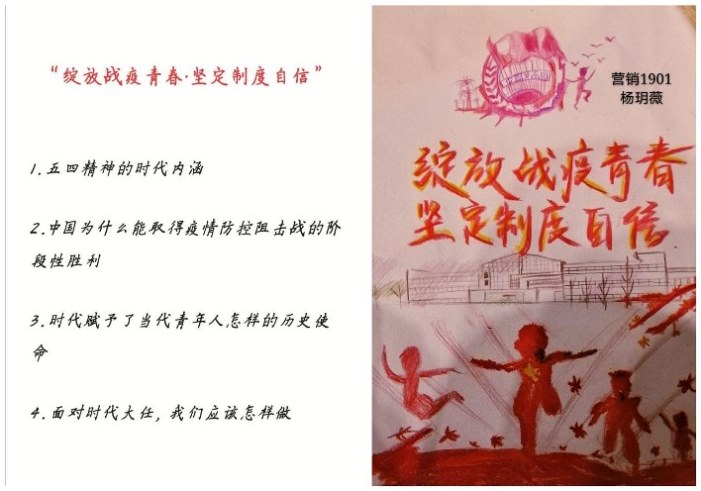 “绽放战疫青春·坚定制度自信”
1.五四精神的时代内涵
2.中国为什么能取得疫情防控阻击战的阶
段性胜利
3.时代赋予了当代青年人怎样的历史使
命
4.面对时代大任，我们应该怎样做
营销1901
杨玥薇
绽放战疫青春
坚定制度自信